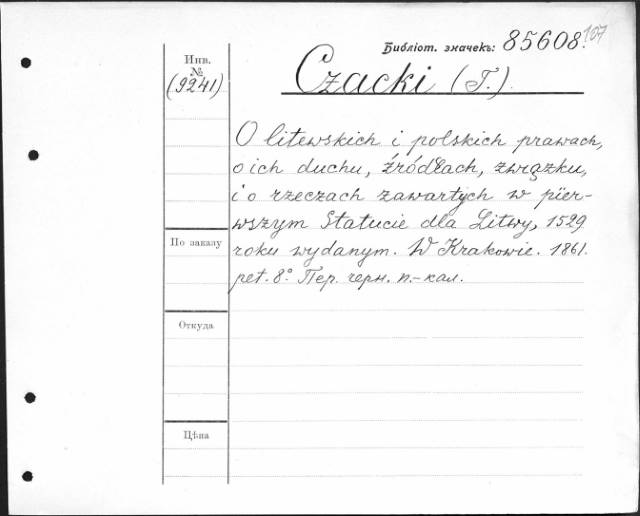 Библіот. значекъ: 85608. 107
Инв.
№
(9241)
Czacki (T.)
O litewskich i polskich prawach,
o ich duchu, źródłach, związku,
i o rzeczach zawartych w pier-
wszym Statucie dla Litwy, 1529
roku wydanym. W Krakowie. 1861.
pet. 8° Пер. черн. п.-кал.
По заказу
Откуда
Цѣна